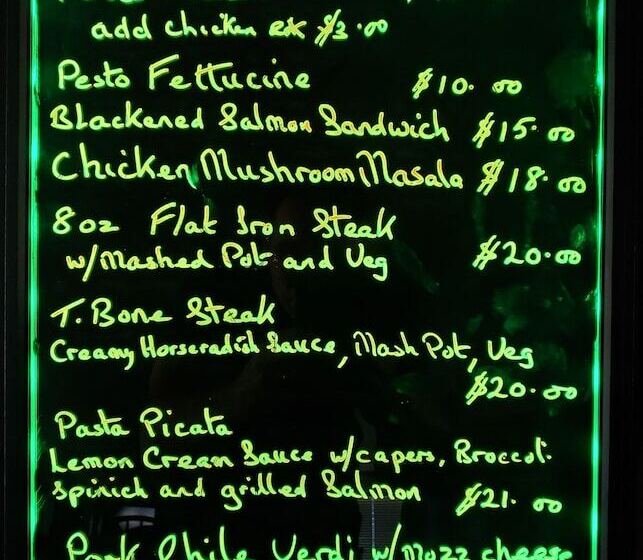 add chicken ex $3.00
Pesto Fettucine $10.00
Blackened Salmon Sandwich $15.00
Chicken Mushroom Masala $18.00
8oz Flat Iron Steak
w/Mashed Pot and Veg $20.00
T. Bone Steak
Creamy Horseradish Sauce, Mash Pot, Veg
$20.00
Pasta Picata
Lemon Cream Sauce w/capers, Broccoli
Spinich and grilled Salmon $21.00
Pork Chile Verdi w/Mozz cheese